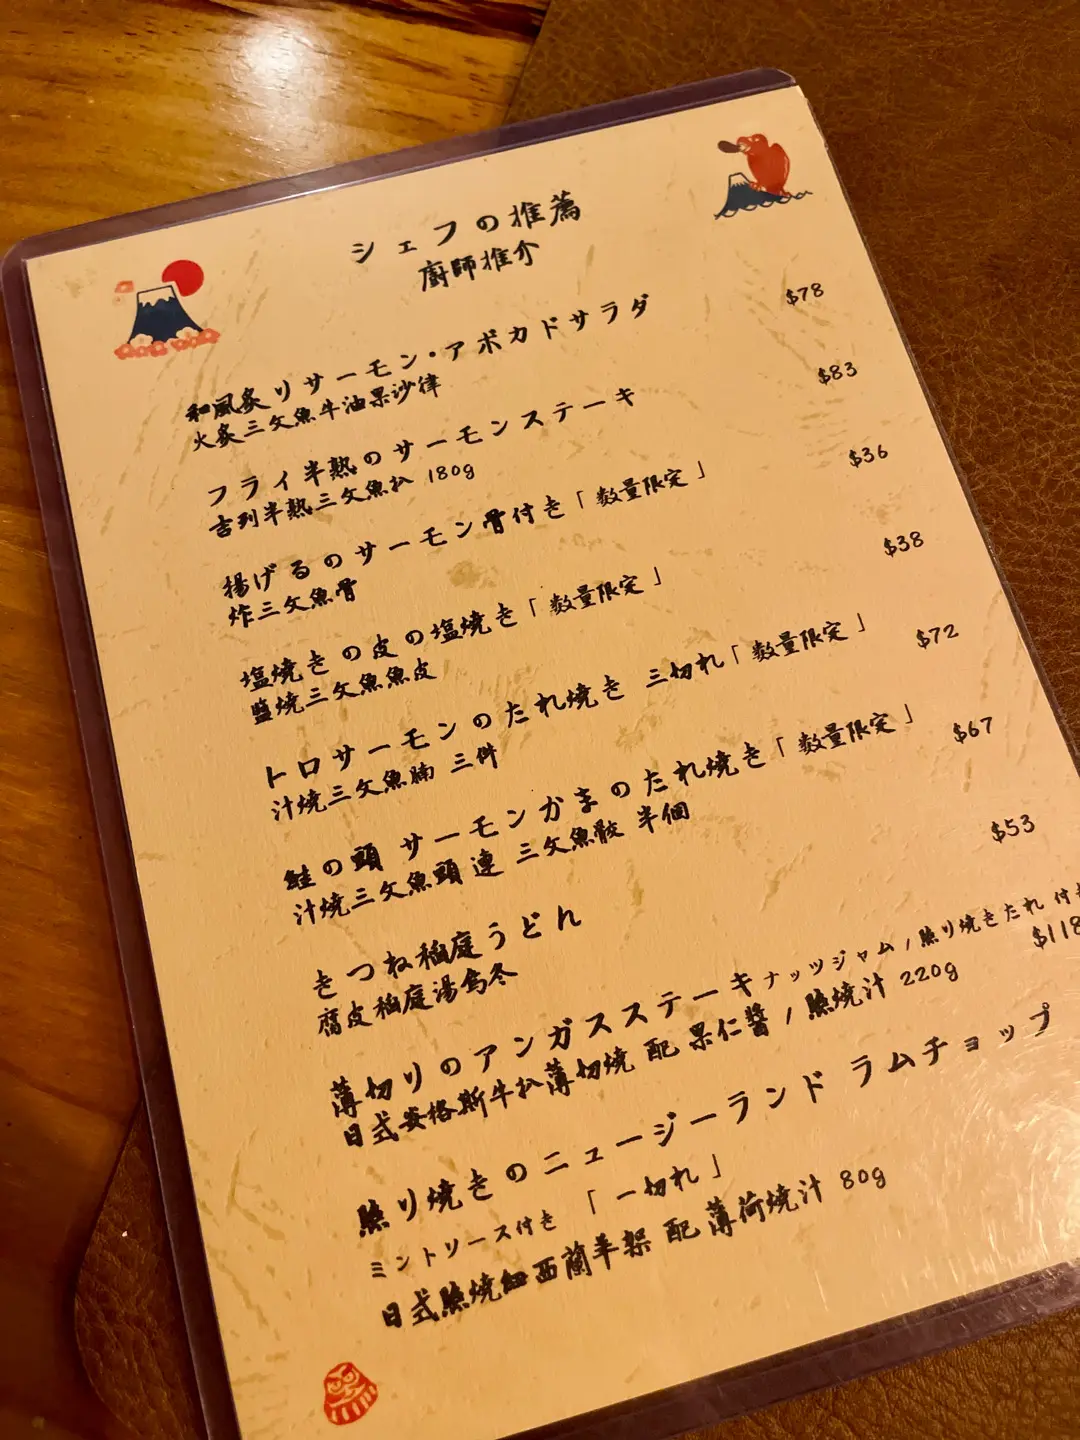 シェフの推薦
廚師推介
和風炙リサーモン・アボカドサラダ $78
火炙三文魚牛油果沙律
フライ半熟のサーモンステーキ $83
吉列半熟三文魚扒 180g
揚げるのサーモン骨付き「数量限定」 $36
炸三文魚骨
塩焼きの皮の塩焼き「数量限定」 $38
鹽燒三文魚魚皮
トロサーモンのたれ焼き 三切れ「数量限定」 $72
汁燒三文魚腩 三件
鮭の頭 サーモンかまのたれ焼き「数量限定」 $67
汁燒三文魚頭連三文魚鮫 半個
きつね稲庭うどん $53
腐皮稲庭湯烏冬
薄切りのアンガスステーキナッツジャム/照り焼きたれ 付き $118
日式安格斯牛扒薄切燒 配 果仁醬/照燒汁 220g
照り焼きのニュージーランド ラムチョップ
ミントソース付き「一切れ」
日式照燒紐西蘭羊架 配 薄荷燒汁 80g